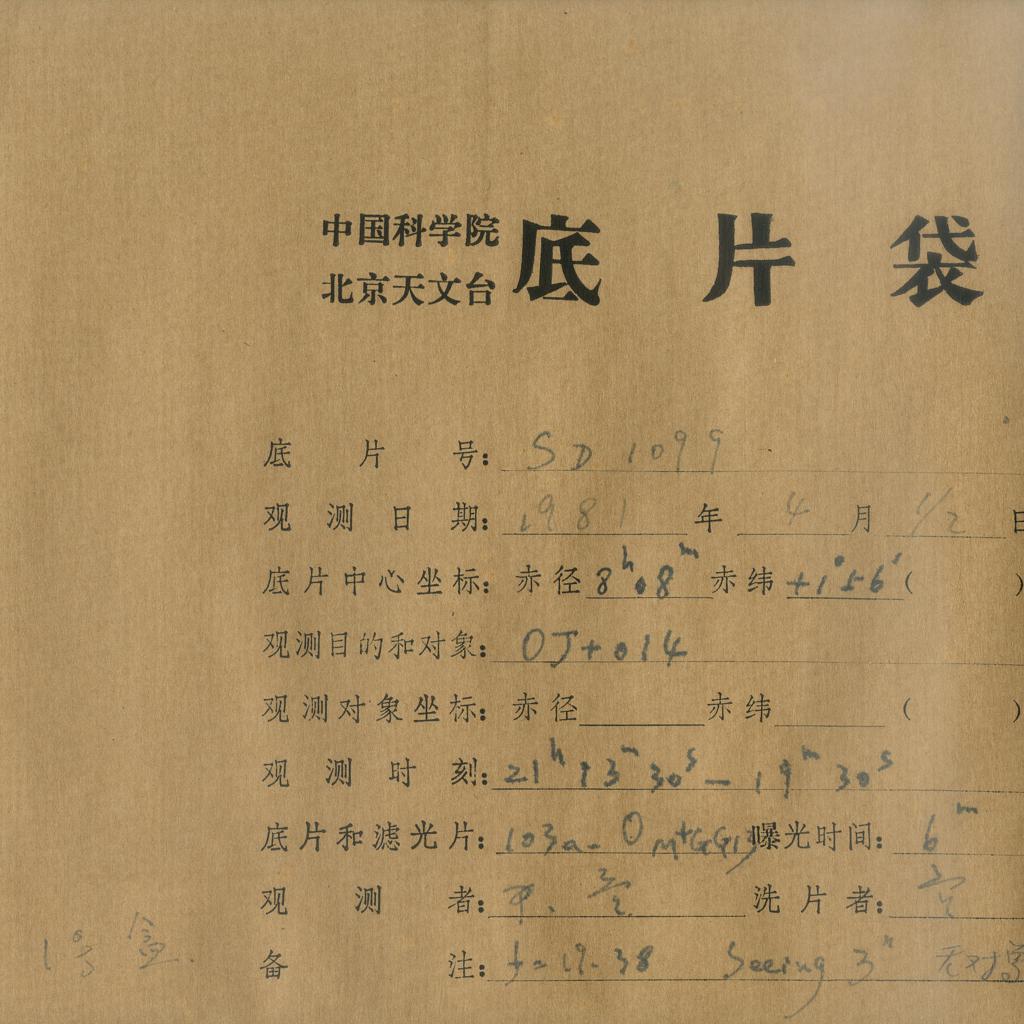 中国科学院
北京天文台 底片袋
底片号: SD 1099
观测日期: 1981 年 4 月 1/2 日
底片中心坐标: 赤径 8h08m 赤纬 +1°56' ( )
观测目的和对象: OJ+014
观测对象坐标: 赤径 赤纬 ( )
观测时刻: 21h13m30s — 19m30s
底片和滤光片: 103a-O M+GG13 曝光时间: 6m
观测者: 洗片者:
备注: f=19.38 Seeing 3" 无对
1号盒.